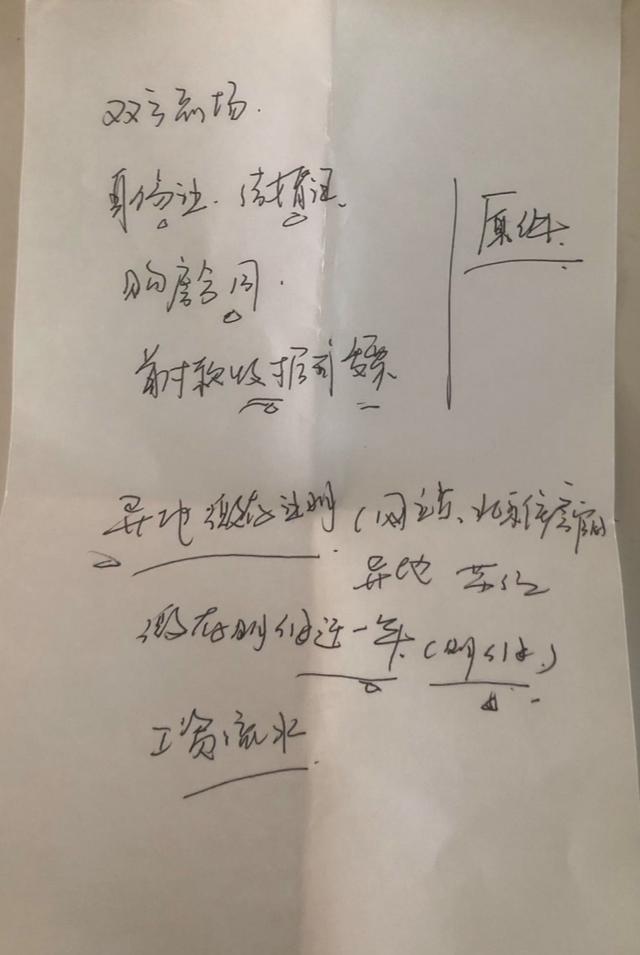 双方到场.
身份证.结婚证.
购房合同.
首付款收据或发票.
原件.
异地缴存证明(网站、北京住房
异地
缴存明细近一年(明细.)
工资流水